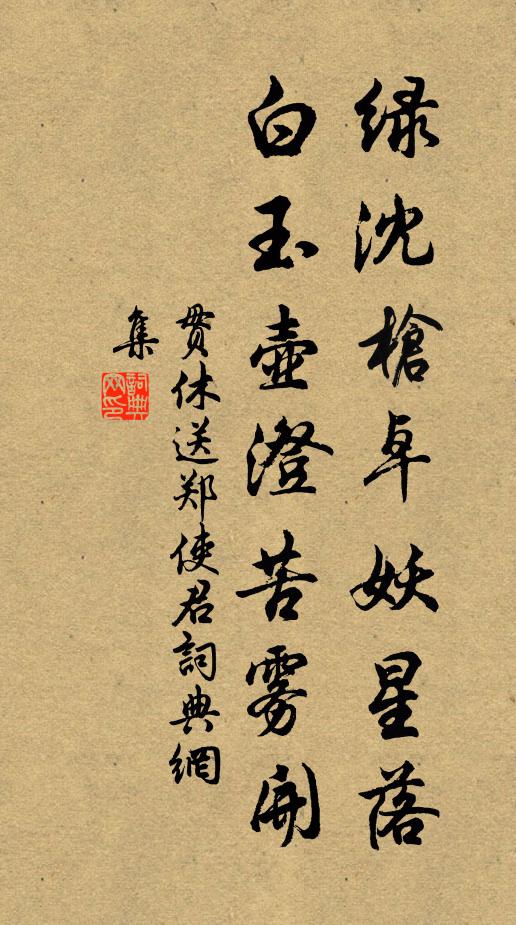 绿沈槍卓妖星落
白玉壺澄苦雾開
贯休送郑使君詞典網
集
詞典網印